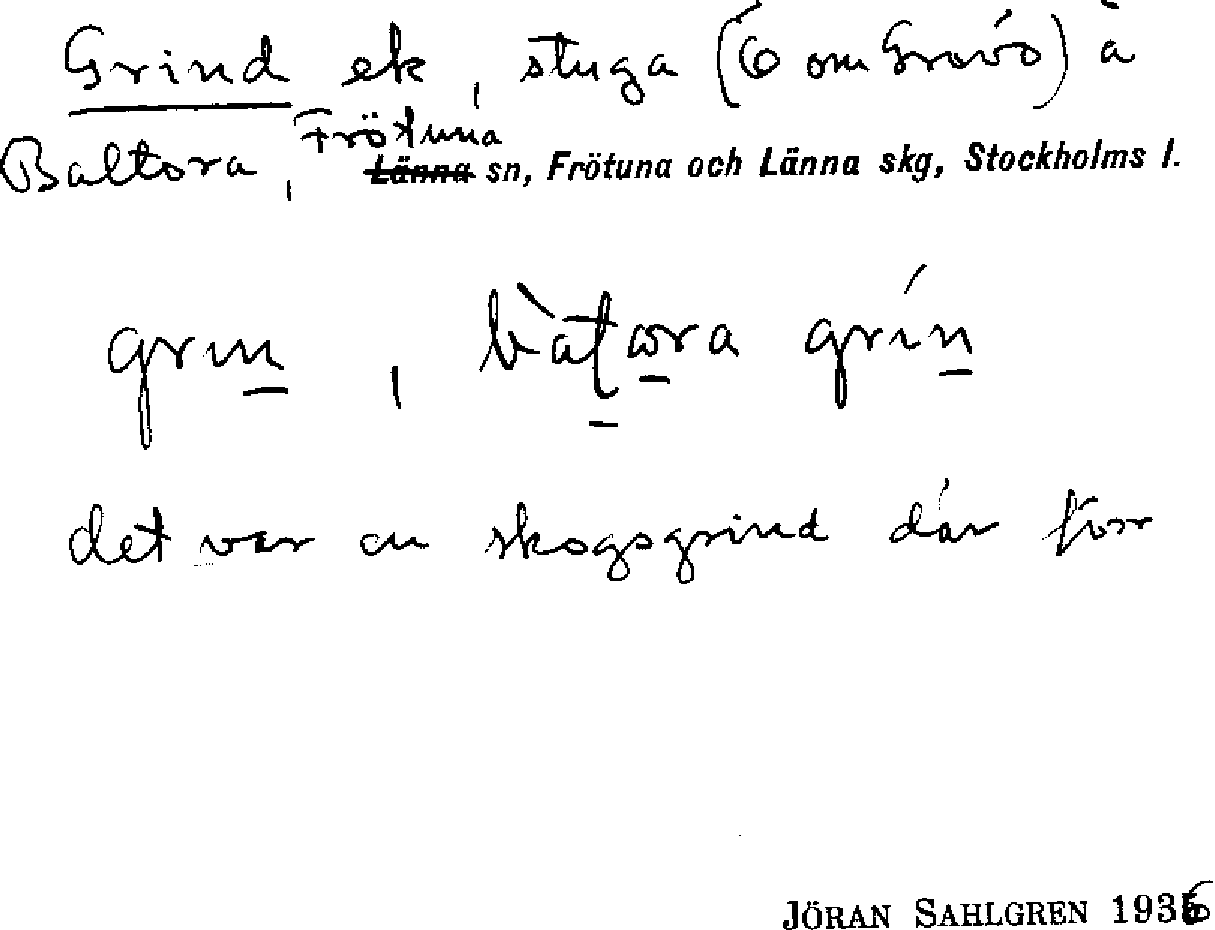 Grind ek, stuga (Ö om Gravö) å
Baltora, Frötuna ~~Länna~~ sn, Frötuna och Länna skg, Stockholms l.
grin̲, bàt̲ω̲ra grín̲
det var en skogsgrind där förr
JÖRAN SAHLGREN 1936